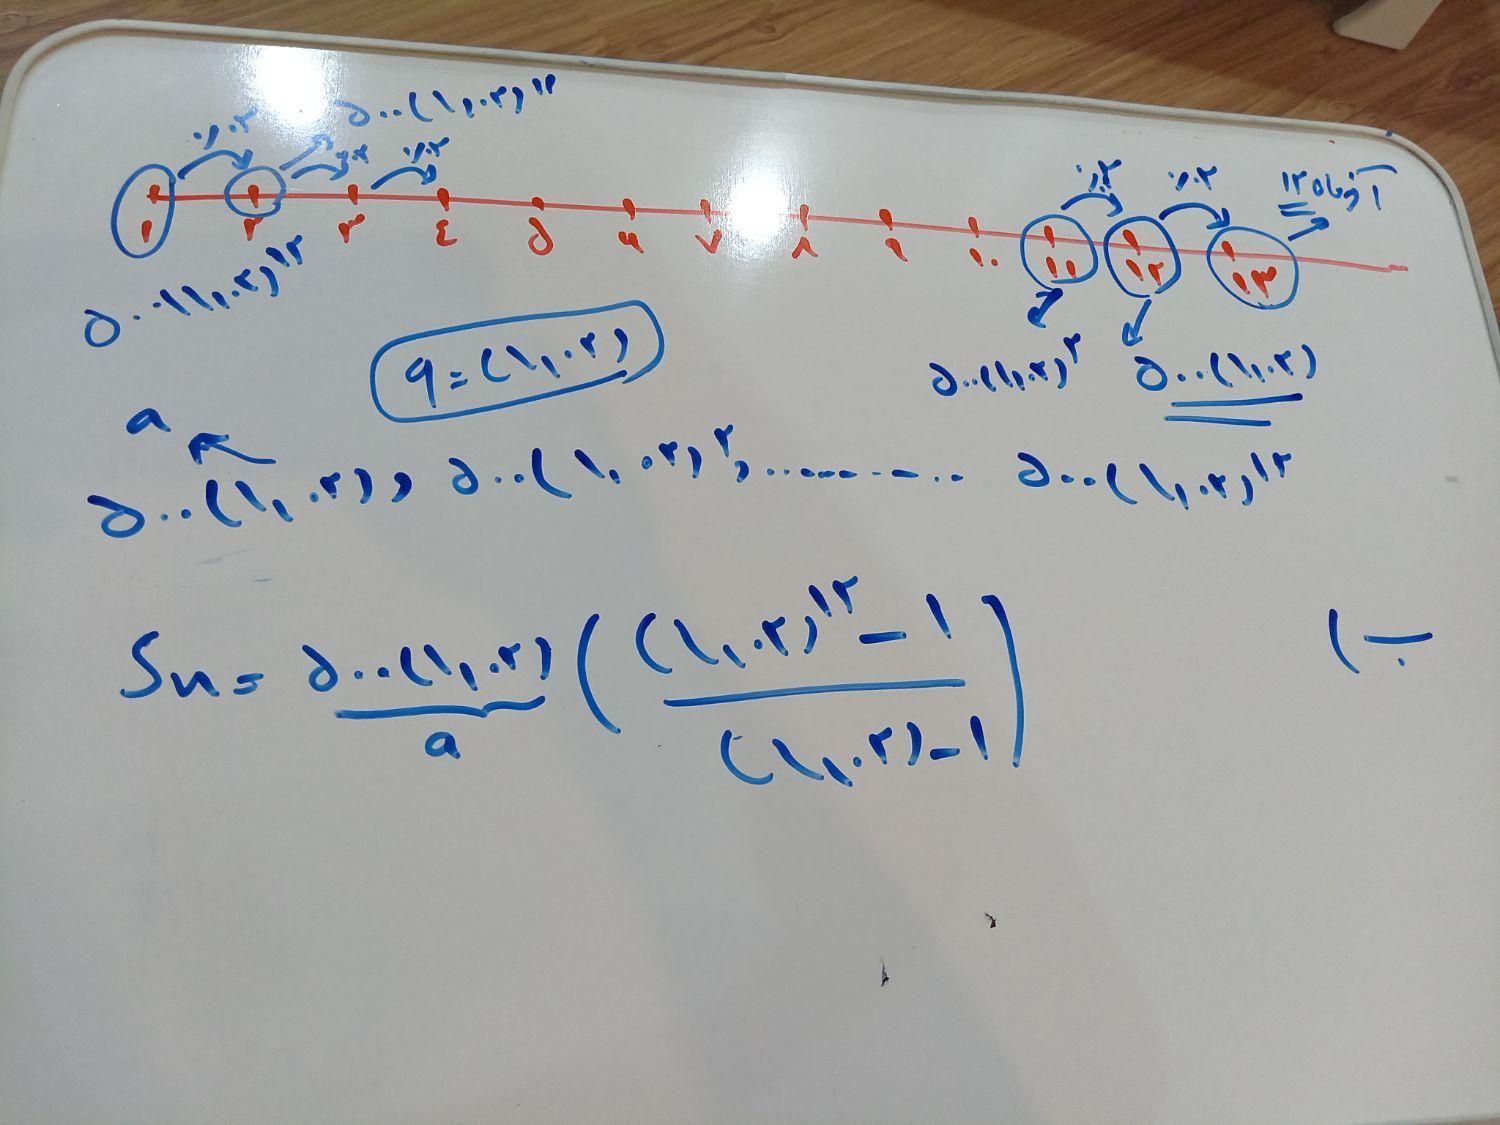 ۵۰۰(۱,۰۲)^۱۲
٪۰۲ ٪۰۲ ٪۰۲ ٪۰۲ آخر ماه ۱۲
۱ ۲ ۳ ٤ ۵ ۶ ۷ ۸ ۹ ۱۰ ۱۱ ۱۲ ۱۳
۵۰۰(۱,۰۲)^۱۲
q = (۱,۰۲) ۵۰۰(۱,۰۲)^۲ ۵۰۰(۱,۰۲)
a
۵۰۰(۱,۰۲) , ۵۰۰(۱,۰۲)^۲ , .......... ۵۰۰(۱,۰۲)^۱۲
ب)
Sn = ۵۰۰(۱,۰۲) ( (۱,۰۲)^۱۲ - ۱ / (۱,۰۲) - ۱ )
a